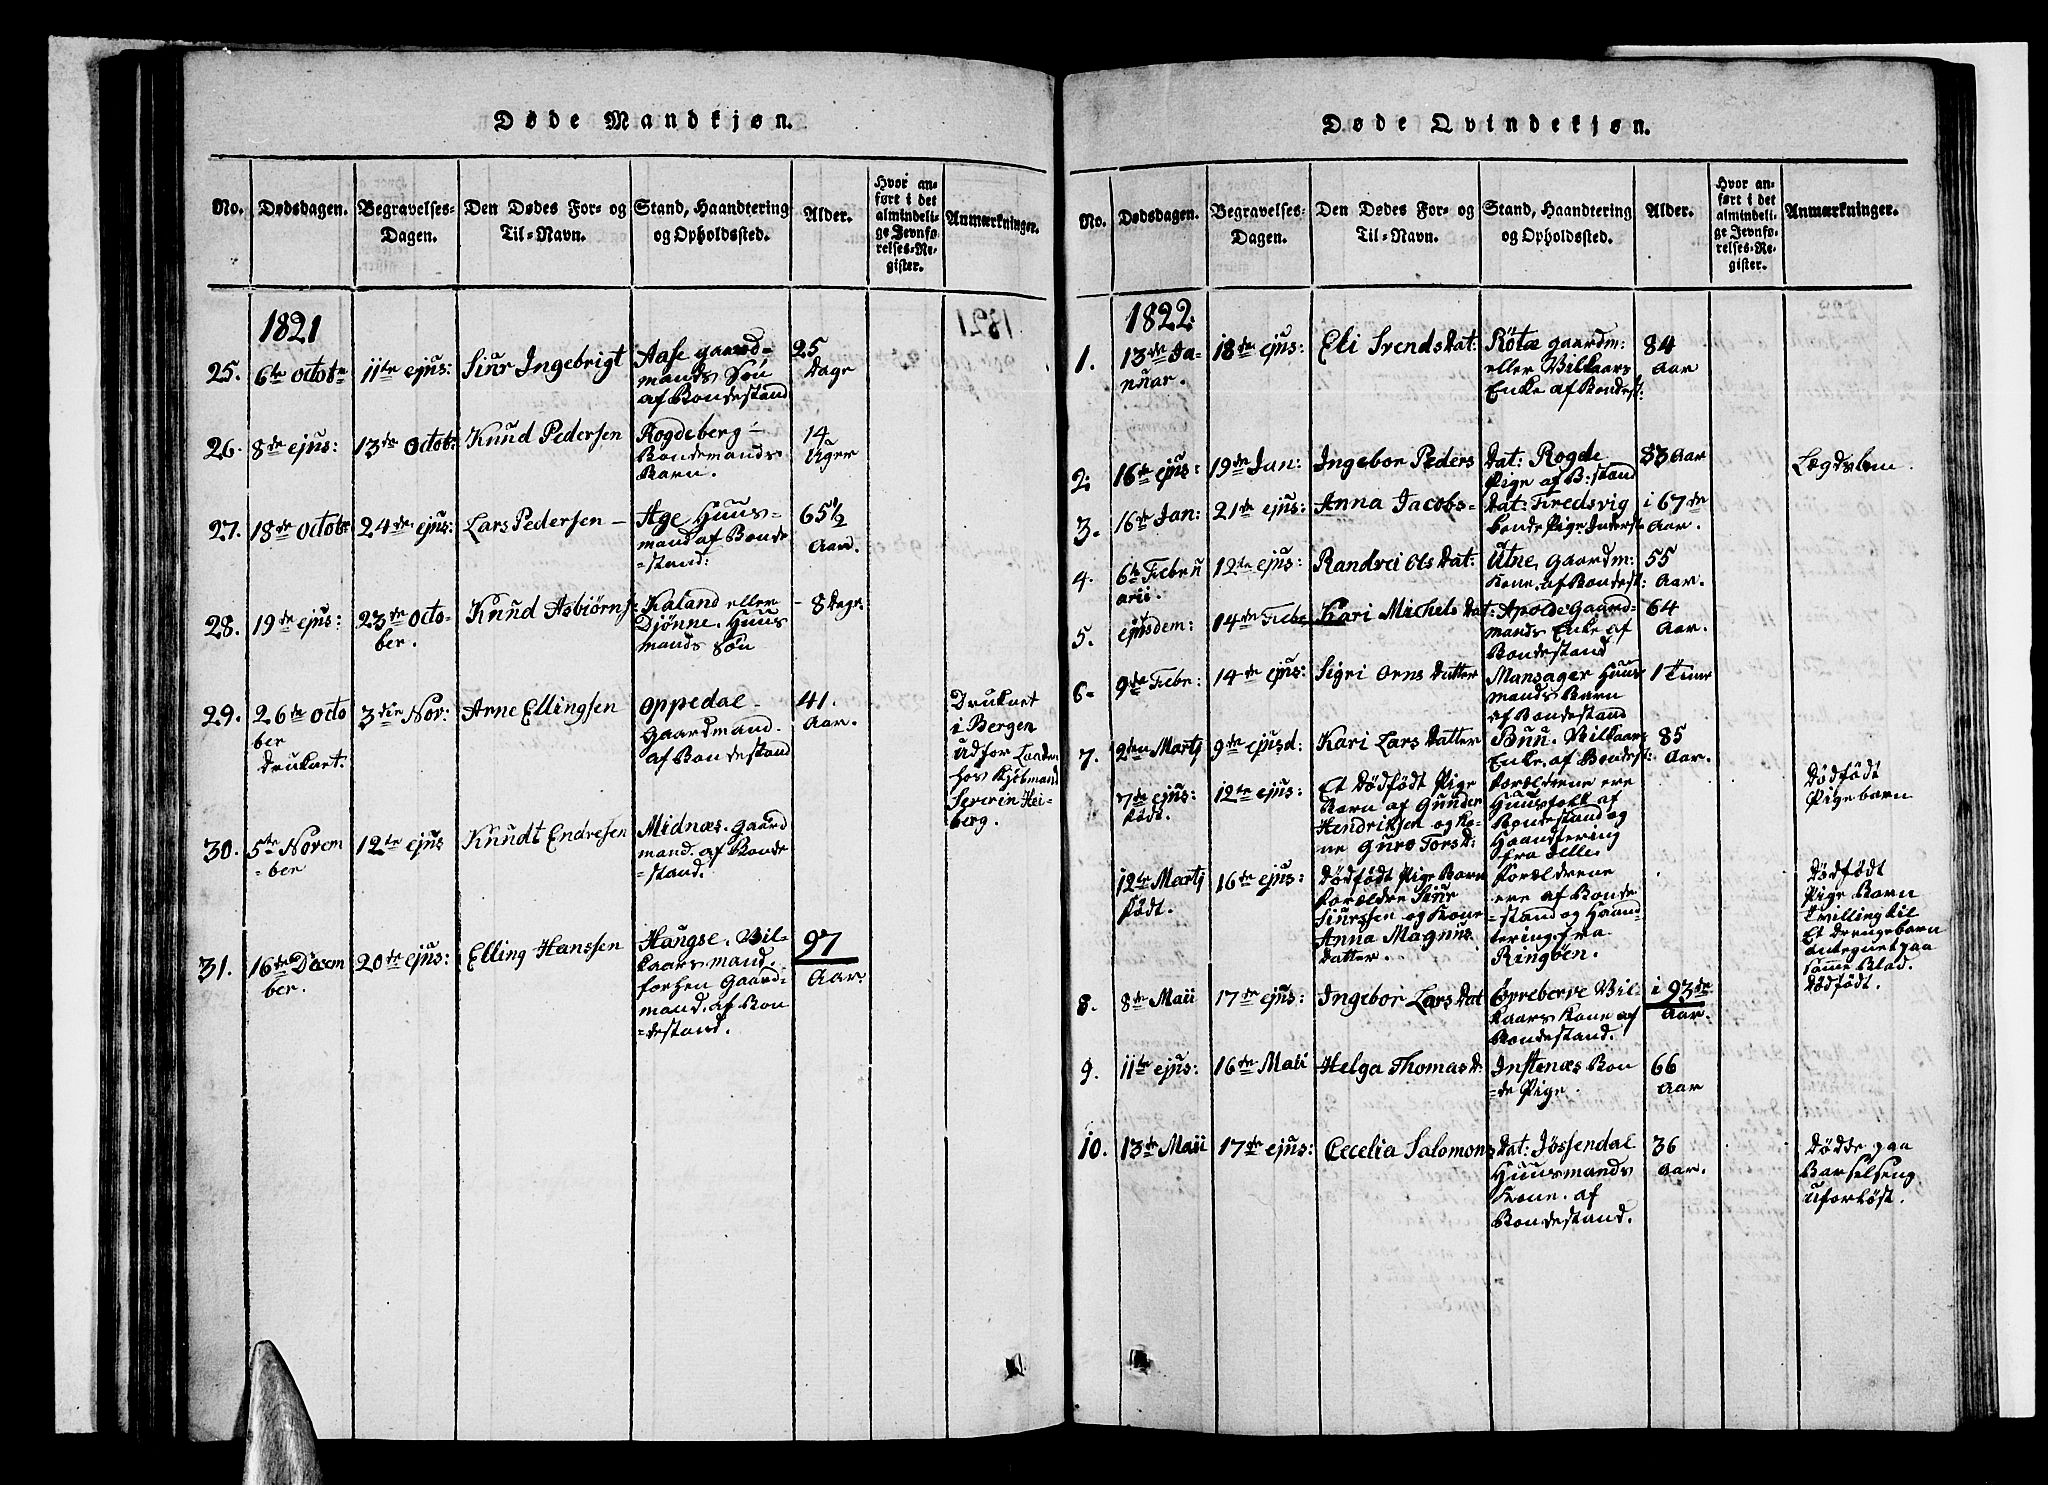 Døde Mandkjøn.
No.
Dødsdagen.
Begravelses-
Dagen.
Den Dødes For- og
Til-Navn.
Stand, Haandtering
og Opholdssted.
Alder.
Hvor an-
ført i det
almindeli-
ge Jevnfø-
relses-Re-
gister.
Anmærkninger.
1821
25.
6te Octobr
11te ejus:
Siur Ingebrigt
Aase gaard-
mands Søn
af Bondestand
25
Dage
26.
8de ejus:
13de Octob:
Knud Pedersen
Rogdeberg -
Bondemands
Barn.
14
Uger
27.
18de Octobr
24de ejus:
Lars Pedersen -
Age Huus-
mand af Bonde
=stand:
65½
Aar.
28.
19de ejus:
23de Octo-
ber.
Knud Asbiørns:
Kaland eller
Djønne. Huus
mands Søn
- 8 Dage.
29.
26de Octo
ber
Druknet.
3die Nov:
Arne Ellingsen
Oppedal -
Gaardmand.
af Bondestand
41.
Aar.
Druknet
i Bergen
Udfor
hos Kjøbmand
Severin Hei-
berg.
30.
5te Novem
=ber
12te ejus
Knudt Endresen
Midnæs. Gaard
mand. af Bonde
=stand.
31.
16de Decem
ber.
20de ejus:
Elling Hanssen
Haugse. Vil-
kaarsmand.
forhen Gaard-
mand. af Bon
=destand.
97
Aar.
Døde Qvindekjøn.
No.
Dødsdagen.
Begravelses-
Dagen.
Den Dødes For- og
Til-Navn.
Stand, Haandtering
og Opholdssted.
Alder.
Hvor an-
ført i det
almindeli-
ge Jevnfø-
relses-Re-
gister.
Anmærkninger.
1822.
1.
13de Ja-
nuar.
18de ejus:
Eli Svends Dat:
Røtæ gaardm:
eller Vilkaars
Enke af Bondest:
84
Aar
2.
16de ejus:
19de Jan:
Ingebor Peders
Dat: Rogde
Pige af B:stand
83 Aar
Lægdslem.
3.
16de Jan:
21de ejus:
Anna Jacobs-
Dat: Tredsvig
bonde Pige Inderst
i 67de
Aar.
4.
6te Febru
arii
12te ejus:
Randvei Ols Dat:
Utne, gaardm:
Kone. af Bondest:
55
Aar.
5.
ejusdem:
14de Febr
Kari Michels Dat:
Apolde Gaard-
mands Enke af
Bondestand
64
Aar.
6.
9de Febr:
14de ejus:
Sigri Orns Datter
Mansager Huus
mands Barn
af Bondestand
1 Time
7.
2den Martj
9de ejusd:
Kari Lars Datter
Buu. Vilkaars
Enke. af Bondest:
85
Aar.
7de ejus:
født.
12te ejus:
Et Dødfødt Pige
Barn af Gunder
Hendriksen og Ko-
ne Guro Tors D:
Forældrene ere
Huusfolk af
Bondestand og
Haandtering
fra
Dødfødt
Pigebarn
12te Martj
født.
16de ejus:
Dødfødt Pige Barn
Forældre Siur
Siurssen og Kone
Anna Magnus
Datter.
Forældrene
ere af Bonde
=stand og Haand-
tering. fra
Ringøen.
Dødfødt
Pige Barn
Tvilling til
Et Drengebarn
antegnet paa
samme Blad.
Dødfødt.
8.
8de Maii
17de ejus:
Ingebor Lars Dat
Eprebersve Vil-
kaars Kone af
Bondestand.
i 93de
Aar.
9.
11te ejus:
16de Maii
Helga Thomas D.
Instenæs Bon
=de Pige.
66
Aar
10.
13de Maii
17de ejus:
Cecelia Salomons
Dat: Jøssendal
Huusmands
Kone. af
Bondestand.
36
Aar.
Dødde paa
Barselseng
uforløst.